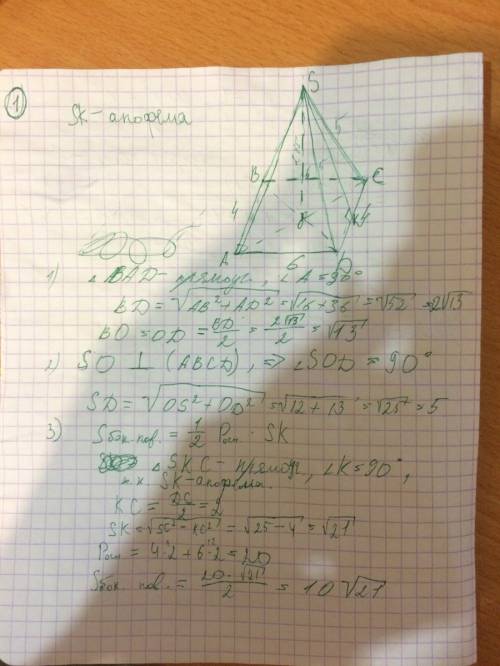 1
SK - апофема
S
5
B
C
4
4
K
A
6
D
1) △BAD - прямоуг., ∠A = 90°
BD = √AB² + AD² = √16 + 36 = √52 = 2√13
BO = OD = BD/2 = 2√13/2 = √13
2) SO ⊥ (ABCD), => ∠SOD = 90°
SD = √OS² + OD² = √12 + 13 = √25 = 5
3) Sбок. пов. = 1/2 Pосн · SK
△SKC - прямоуг, ∠K = 90°,
т.к. SK - апофема.
KC = DC/2 = 2
SK = √SC² - KC² = √25 - 4 = √21
Pосн = 4·2 + 6·2 = 20
Sбок. пов. = 20·√21/2 = 10√21